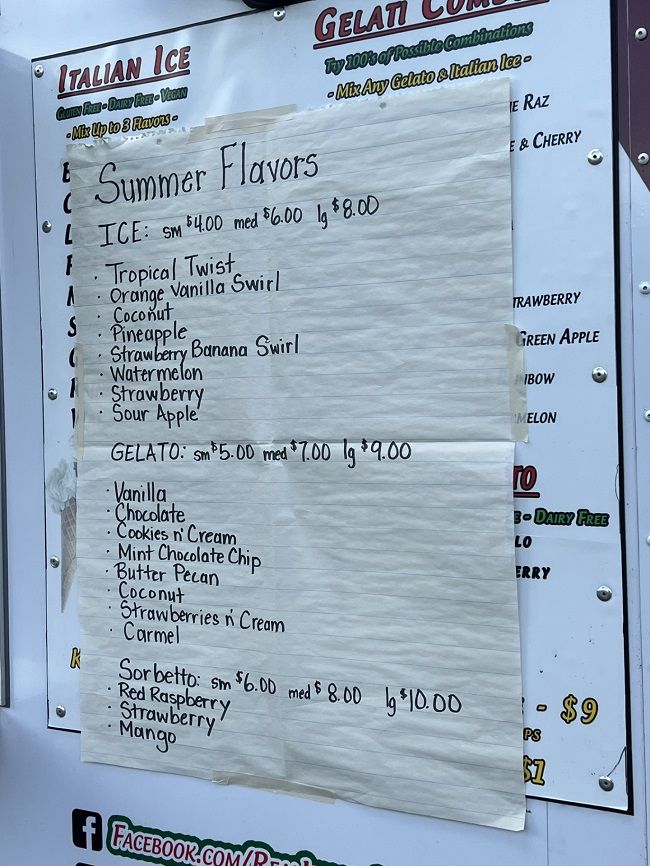 ITALIAN ICE
GLUTEN FREE - DAIRY FREE - VEGAN
- MIX UP TO 3 FLAVORS -
GELATI
TRY 100'S OF POSSIBLE COMBINATIONS
- MIX ANY GELATO & ITALIAN ICE -
RAZ
& CHERRY
Summer Flavors
ICE: sm $4.00 med $6.00 lg $8.00
· Tropical Twist
· Orange Vanilla Swirl
· Coconut
· Pineapple
· Strawberry Banana Swirl
· Watermelon
· Strawberry
· Sour Apple
GELATO: sm $5.00 med $7.00 lg $9.00
· Vanilla
· Chocolate
· Cookies n' Cream
· Mint Chocolate Chip
· Butter Pecan
· Coconut
· Strawberries n' Cream
· Carmel
Sorbetto: sm $6.00 med $8.00 lg $10.00
· Red Raspberry
· Strawberry
· Mango
GREEN APPLE
- DAIRY FREE
- $9
$1
f FACEBOOK.COM/